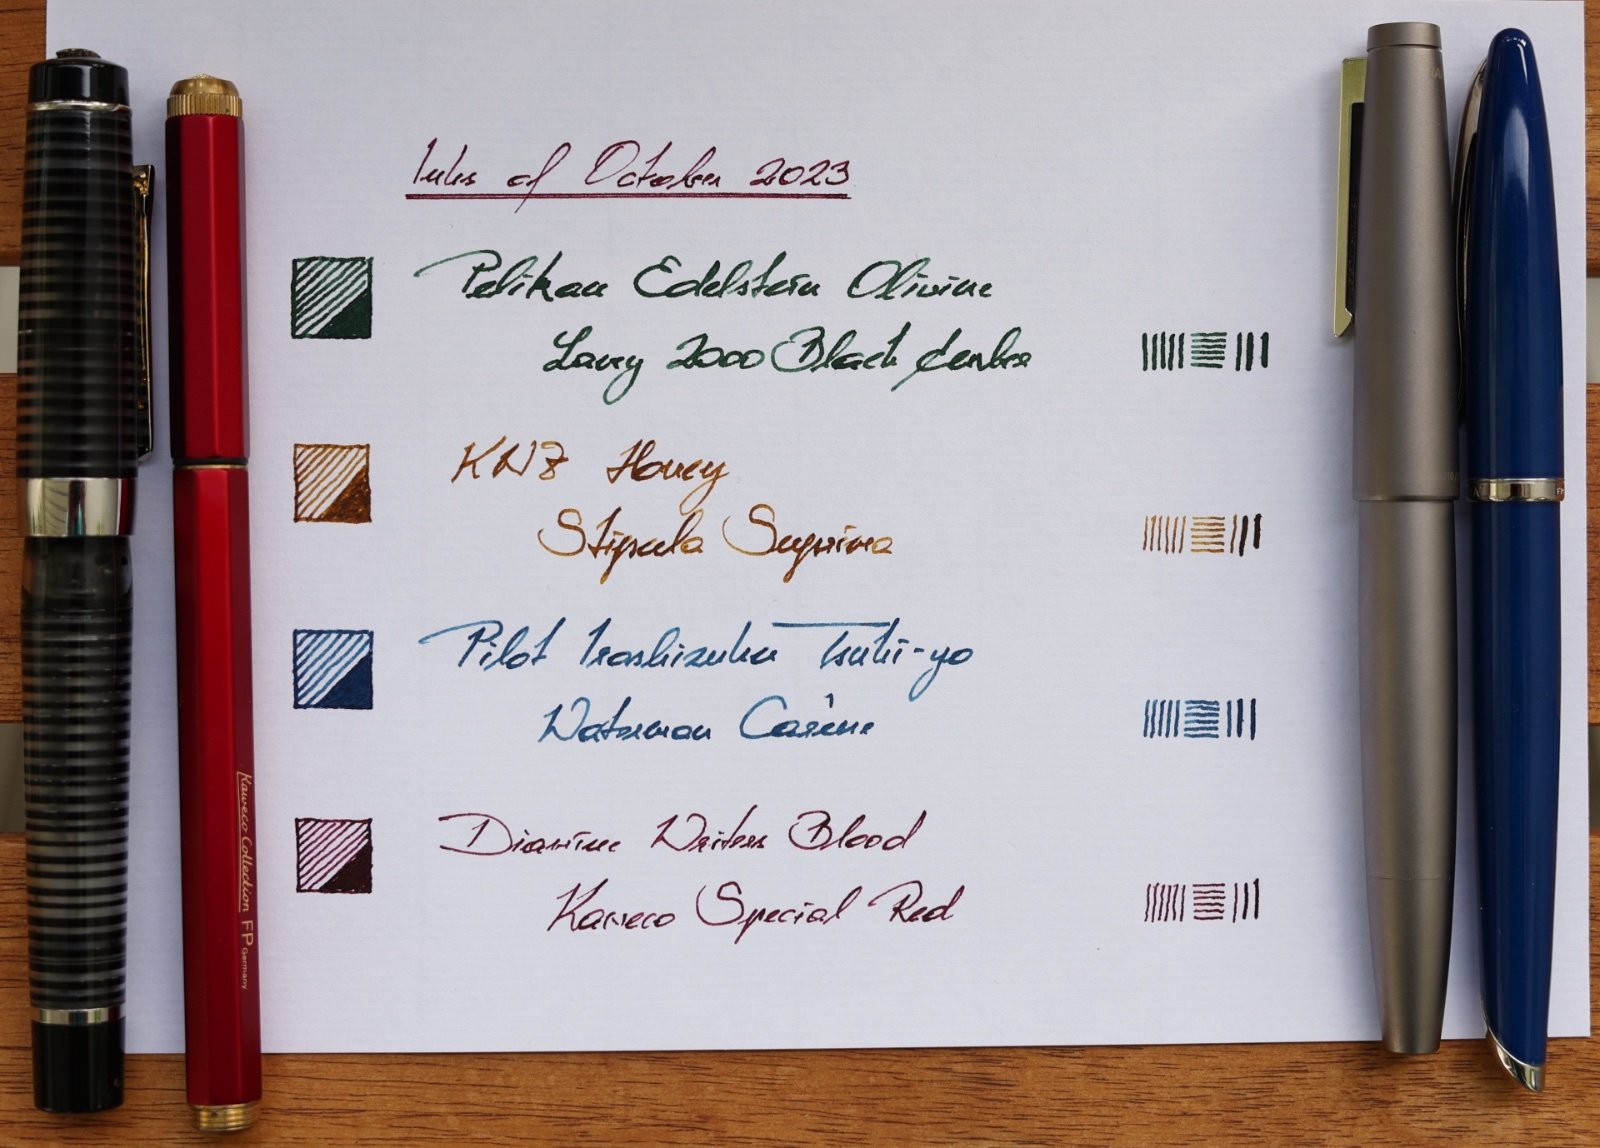 Inks of October 2023
Pelikan Edelstein Olivine
Lamy 2000 Black Amber
KWZ Honey
Stipula Suprema
Pilot Iroshizuku Tsuki-yo
Waterman Carène
Diamine Writers Blood
Kaweco Special Red
Kaweco Collection FP Germany